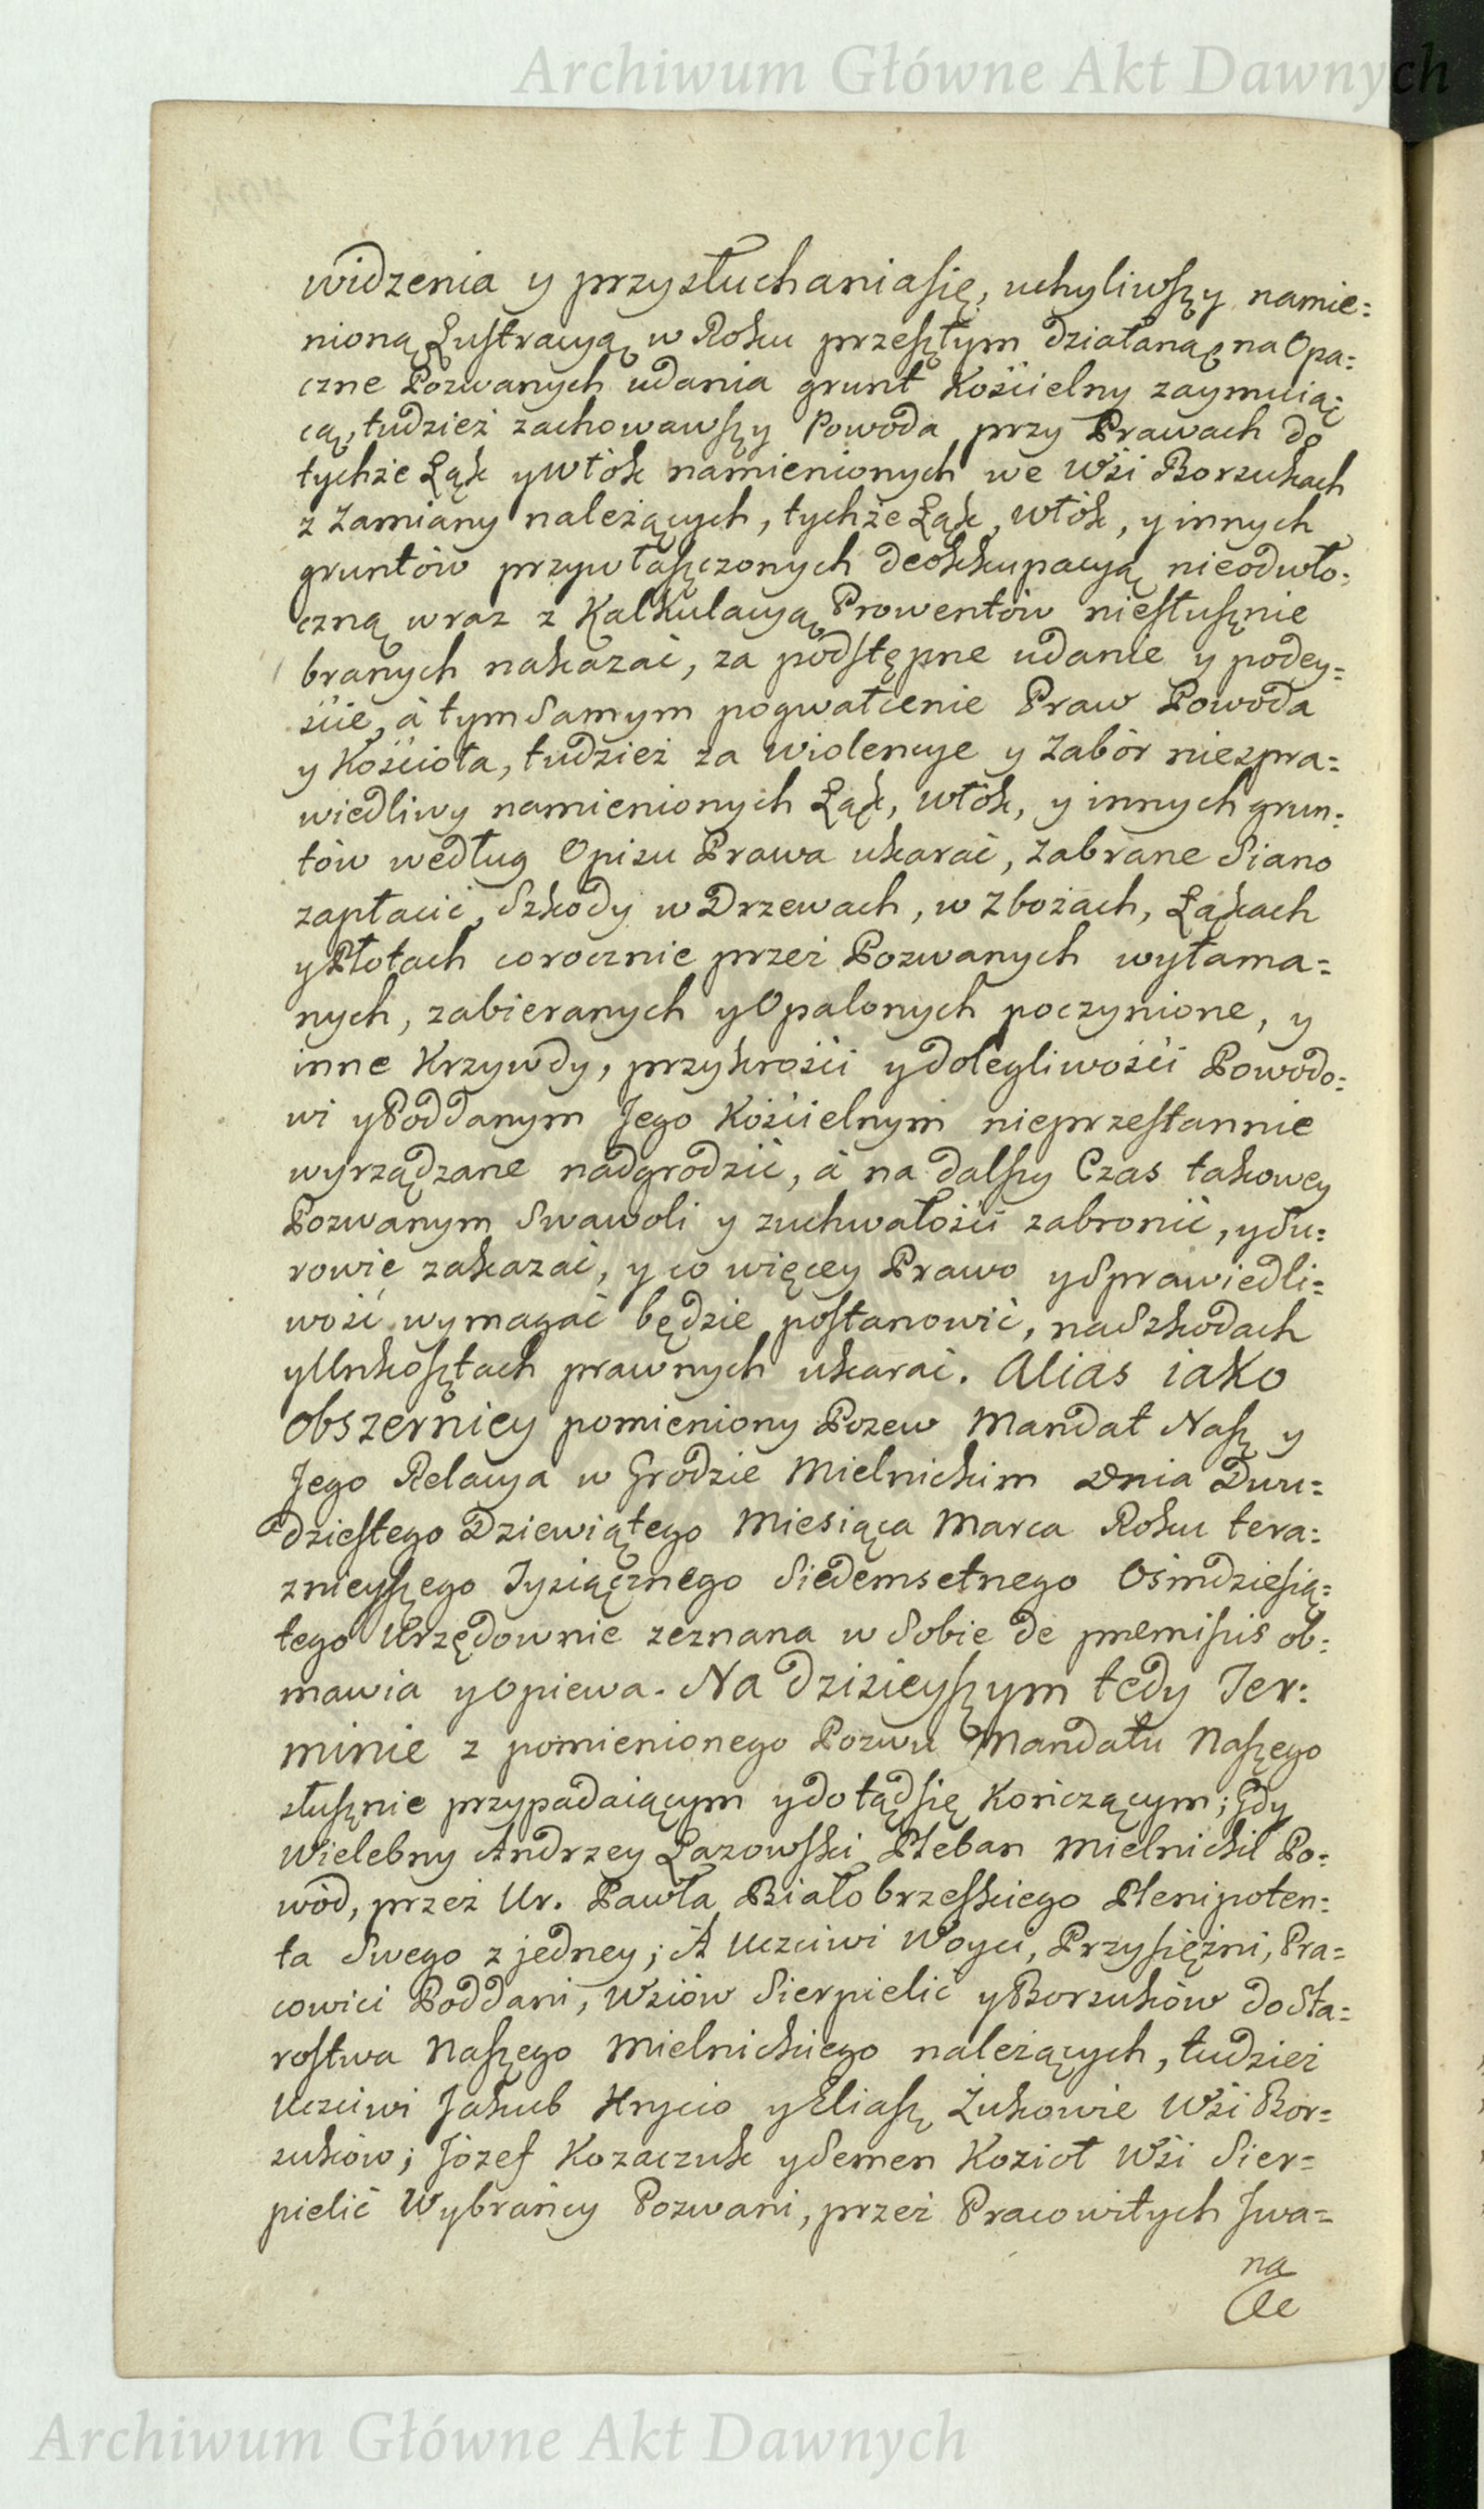 Archiwum Główne Akt Dawnych
widzenia y przysłuchania się, uchyliwszy namie=
nioną Lustracyą w Roku przeszłym działaną na Opa=
czne Pozwanych udania grunt Kościelny zaymuią=
cą, tudzież zachowawszy Powoda przy Prawach do
tychże Łąk y Włók namienionych we Wsi Borsukach
z Zamiany należących, tychże Łąk, Włók, y innych
gruntów przywłaszczonych deokkupacyą nieodwło=
czną wraz z Kalkulacyą Prowentów niesłusznie
branych nakazać, za podstępne udanie y podey=
ście, à tym Samym pogwałcenie Praw Powoda
y Kościoła, tudzież za wiolencye y Zabór niespra=
wiedliwy namienionych Łąk, Włók, y innych grun=
tów według Opisu Prawa ukarać, Zabrane Siano
zapłacić, Szkody w Drzewach, w Zbożach, Łąkach
y Płotach corocznie przez Pozwanych wyłama=
nych, zabieranych y Opalonych poczynione, y
inne Krzywdy, przykrości y dolegliwości Powodo=
wi y Poddanym Jego Kościelnym nieprzestannie
wyrządzane nadgrodzić, à na dalszy Czas takowey
Pozwanym Swawoli y zuchwałości zabronić, y Su=
rowie zakazać, y co więcey Prawo y Sprawiedli=
wość wymagać będzie postanowić, na Szkodach
y Unkosztach prawnych ukarać. Alias iako
obszerniey pomieniony Pozew Mandat Nasz y
Jego Relacya w Grodzie Mielnickim Dnia Dwu=
dziestego Dziewiątego Miesiąca Marca Roku tera=
znieyszego Tysiącznego Siedemsetnego Osmdziesią=
tego Urzędownie zeznana w Sobie de premissis ob=
mawia y Opiewa. Na dzisieyszym tedy Ter=
minie z pomienionego Pozwu Mandatu Naszego
słusznie przypadaiącym y dotąd się Kończącym; Gdy
Wielebny Andrzey Łazowski Pleban Mielnicki Po=
wód, przez Ur. Pawła Białobrzeskiego Plenipoten=
ta Swego z jedney; A Uczciwi Woyci, Przysiężni, Pra=
cowici Poddani, Wsiów Sierpielic y Borsuków do Sta=
rostwa Naszego Mielnickiego należących, tudzież
Uczciwi Jakub Hrycio y Eliasz Żukowie Wsi Bor=
suków; Józef Kozaczuk y Semen Kozioł Wsi Sier=
pielic Wybrańcy Pozwani, przez Pracowitych Jwa=
na
Archiwum Główne Akt Dawnych